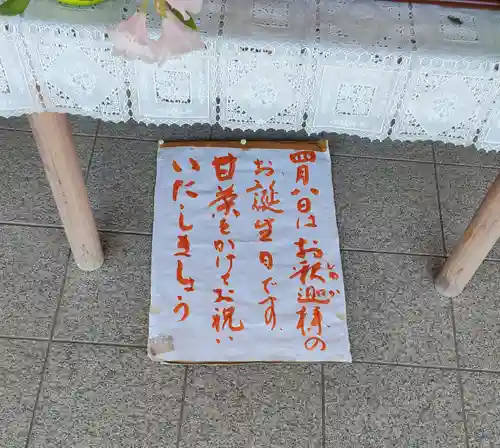 四月八日はお釈迦様の
しゃか
お誕生日です
甘茶をかけてお祝い
いたしましょう